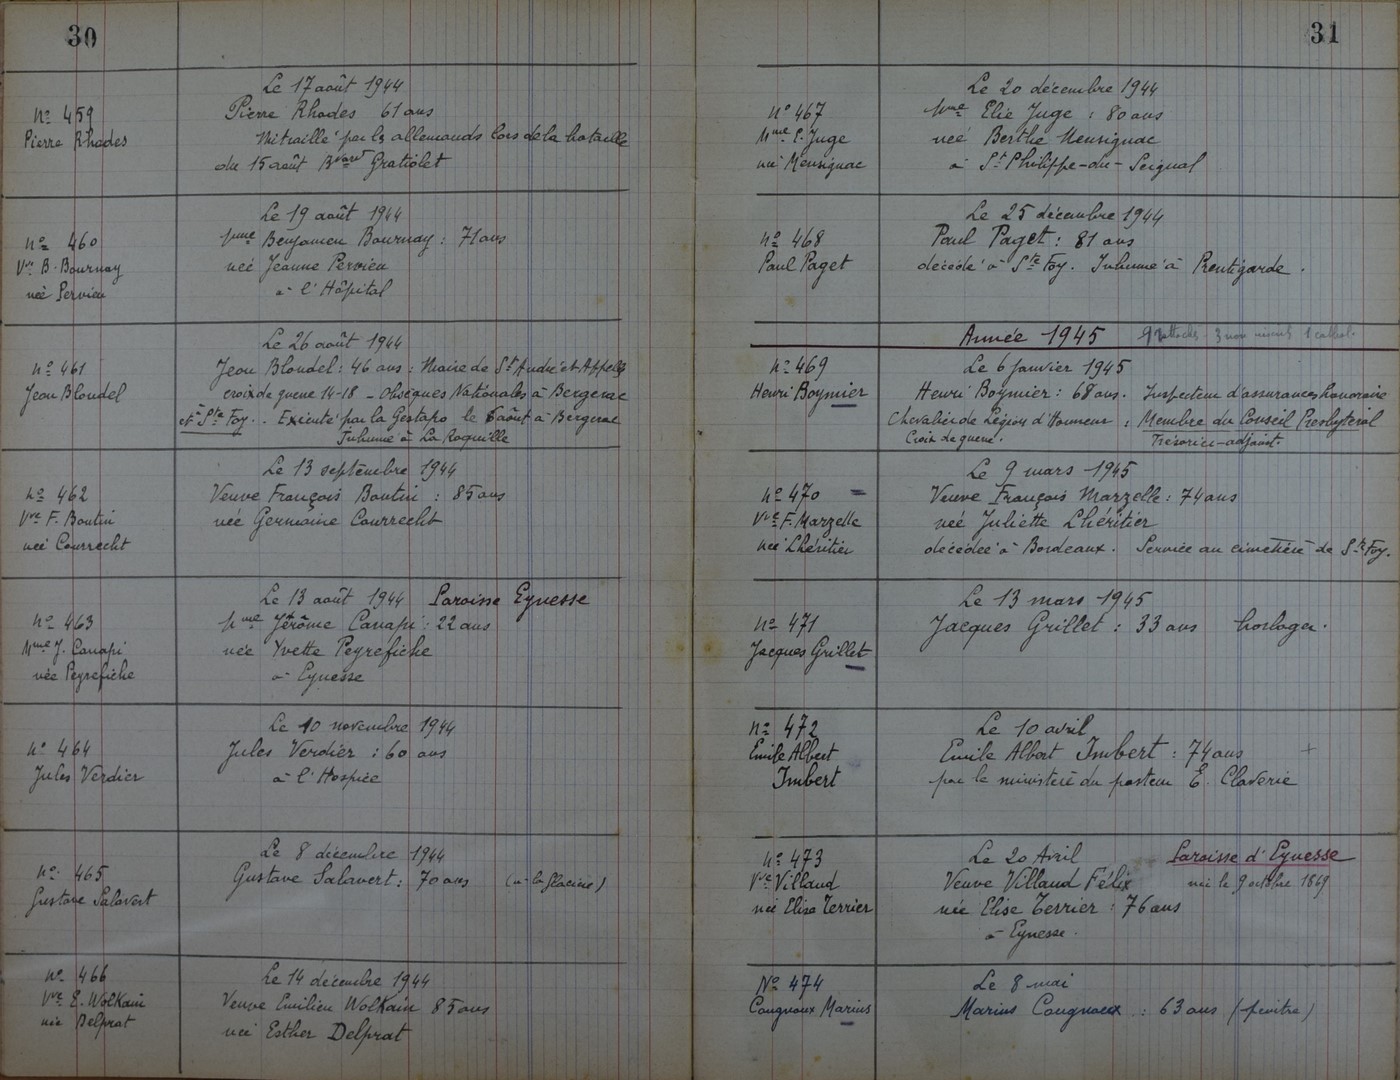 30
Le 17 août 1944
Nº 459
Pierre Rhodes 61 ans
Pierre Rhodes
Mitraillé par les allemands lors de la bataille
du 15 août Bvard Gratiolet
Le 19 août 1944
Nº 460
Mme Benjamen Bournay : 71 ans
Vve B. Bournay
née Jeanne Pervieu
née Pervieu
à l'Hôpital
Le 26 août 1944
Nº 461
Jean Blondel : 46 ans : Maire de St André et Appelles
Jean Blondel
croix de guerre 14-18 - Obsèques Nationales à Bergerac
et à Ste Foy. Exécuté par la Gestapo le 8 août à Bergerac
Inhumé à La Roquille
Le 13 septembre 1944
Nº 462
Veuve François Boutin : 85 ans
Vve F. Boutin
née Germaine Courrecht
née Courrecht
Le 13 août 1944 Paroisse Eynesse
Nº 463
Mme Jérôme Canapi : 22 ans
Mme J. Canapi
née Yvette Peyrefiche
née Peyrefiche
à Eynesse
Le 10 novembre 1944
Nº 464
Jules Verdier : 60 ans
Jules Verdier
à l'Hospice
Le 8 décembre 1944
Nº 465
Gustave Salavert : 70 ans
Gustave Salavert
Le 14 décembre 1944
Nº 466
Veuve Emilien Wolkain 85 ans
Vve E. Wolkain
née Esther Delprat
née Delprat
31
Le 20 décembre 1944
Nº 467
Mme Elie Juge : 80 ans
Mme E. Juge
née Berthe Mensignac
née Mensignac
à St Philippe-du-Seignal
Le 25 décembre 1944
Nº 468
Paul Paget : 81 ans
Paul Paget
décédé à Ste Foy. Inhumé à Rentigarde.
Année 1945
Nº 469
Le 6 janvier 1945
Henri Boymier
Henri Boymier : 68 ans. Inspecteur d'assurances honoraire
Chevalier de Légion d'Honneur : Membre du Conseil Presbytéral
Croix de guerre. Trésorier-adjoint.
Le 9 mars 1945
Nº 470
Veuve François Marzelle : 74 ans
Vve F. Marzelle
née Juliette Lhéritier
née Lhéritier
décédée à Bordeaux. Service au cimetière de Ste Foy.
Le 13 mars 1945
Nº 471
Jacques Grillet : 33 ans horloger.
Jacques Grillet
Nº 472
Le 10 avril
Emile Albert
Emile Albert Imbert : 74 ans
Imbert
par le ministère du pasteur E. Claverie
Nº 473
Le 20 Avril Paroisse d'Eynesse
Vve Villaud
Veuve Villaud Félix née le 9 octobre 1869
née Elise Terrier
née Elise Terrier : 76 ans
à Eynesse.
Nº 474
Le 8 mai
Cougnoux Marius
Marius Cougnoux : 63 ans (peintre)